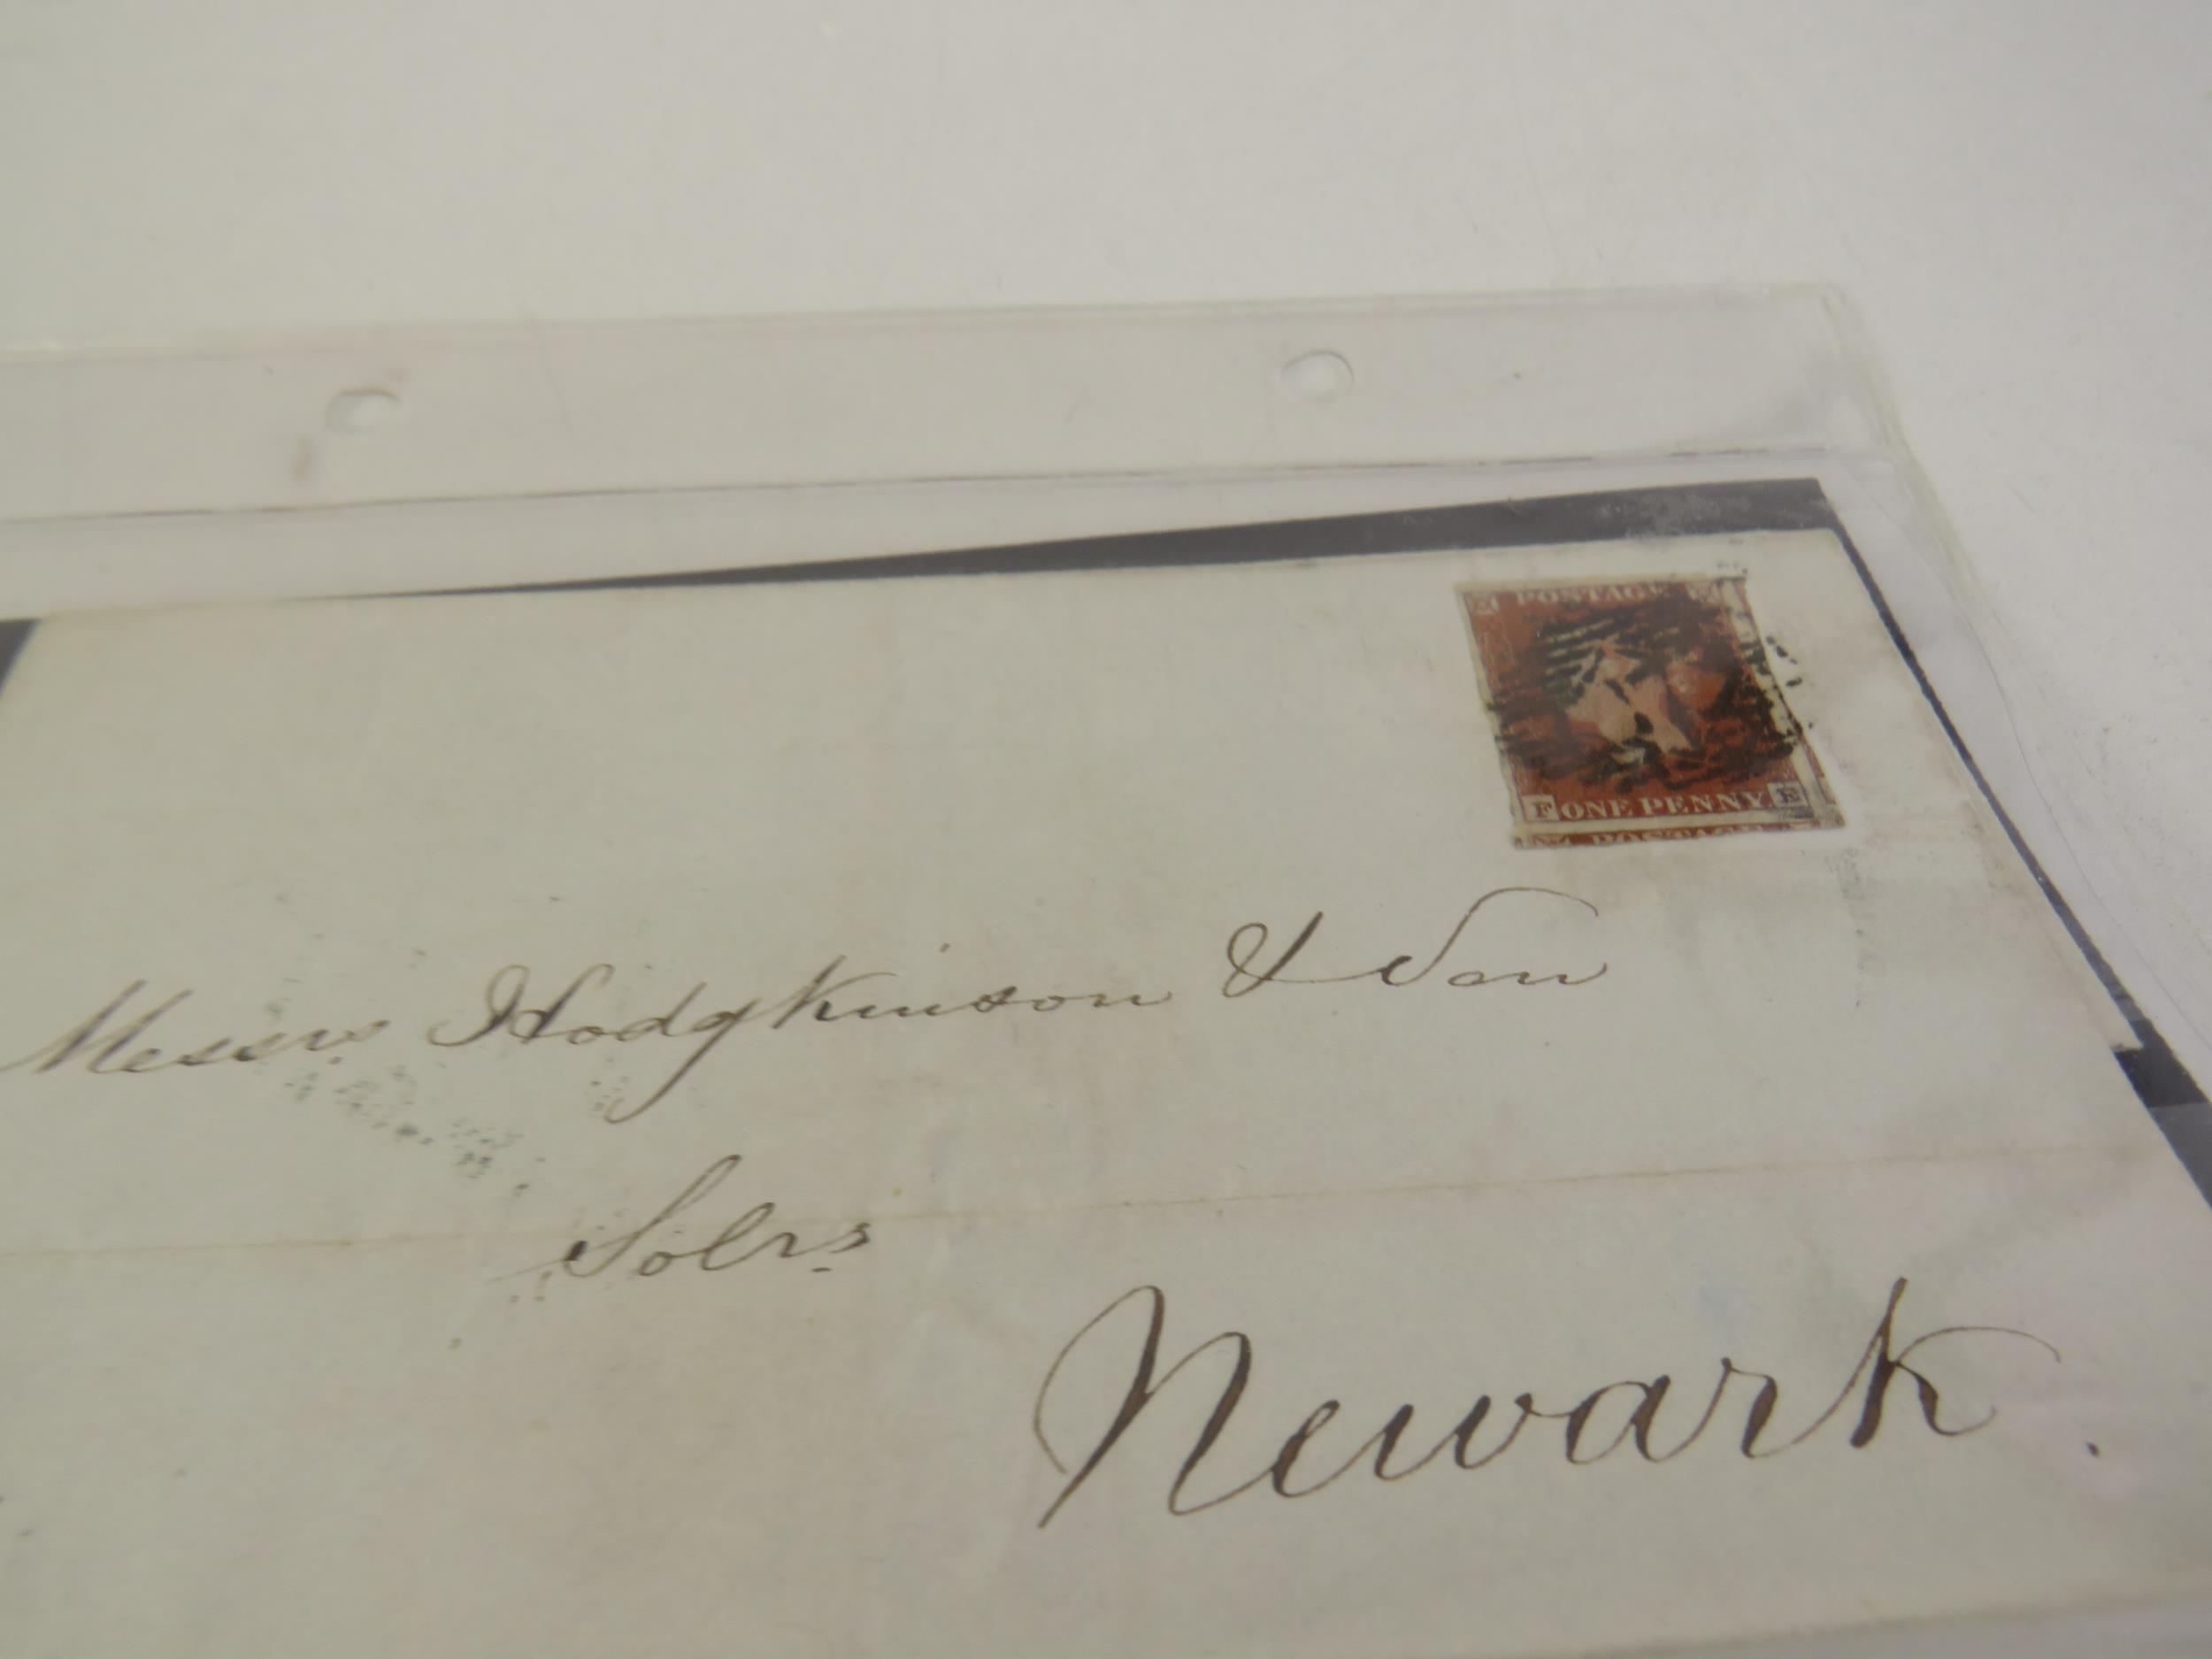 POSTAGE
F ONE PENNY E
POSTAGE
Messrs Hodgkinson & Son
Solrs
Newark.